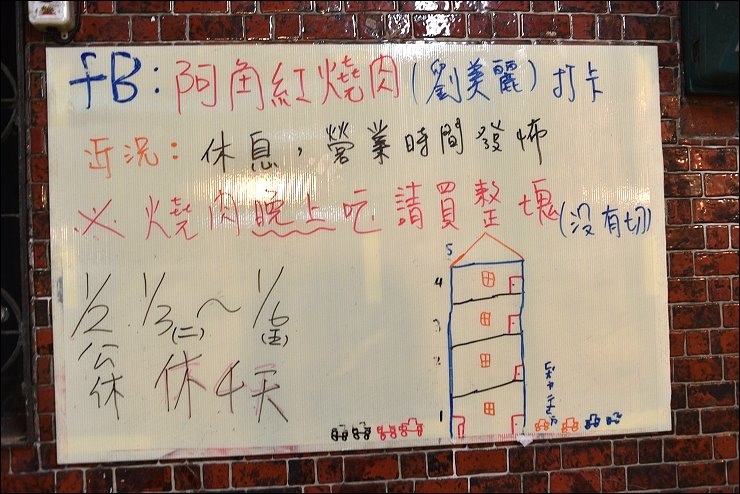 fB：阿角紅燒肉（劉美麗）打卡
近況：休息，營業時間發怖
※燒肉晚上吃請買整塊（沒有切）
1/2 1/3(二)～1/6(五)
公休 休4天
5
4
3
2
1